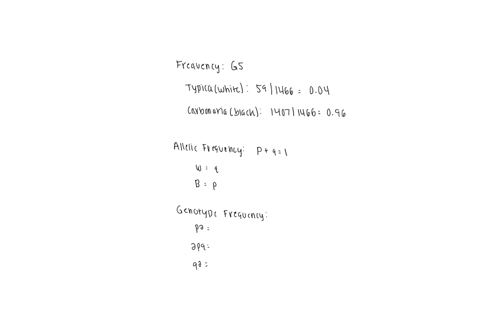 Frequency: G5
Typica(white): 59/1466 = 0.04
Carbonaria(black): 1407/1466= 0.96
Allelic Frequency: P+q=1
w= q
B= p
Genotypic Frequency:
p2=
2pq=
q2=